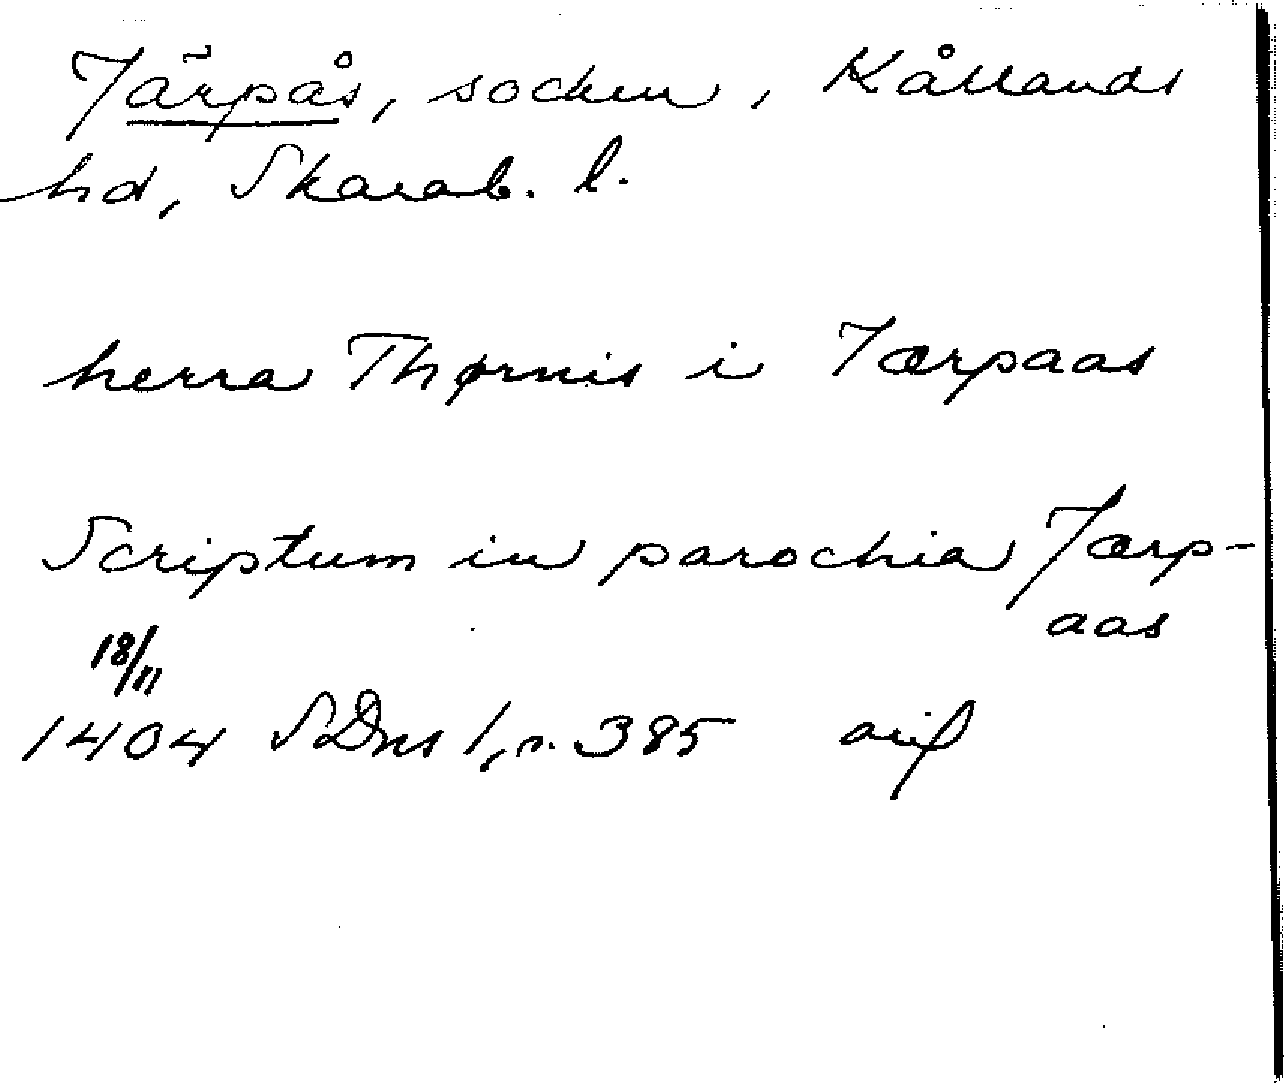 Järpås, socken, Kållands
hd, Skarab. l.
herra Thørnis i Jærpaas
Scriptum in parochia Jærp-
aas
18/11
1404 SDns 1, n. 385 avif